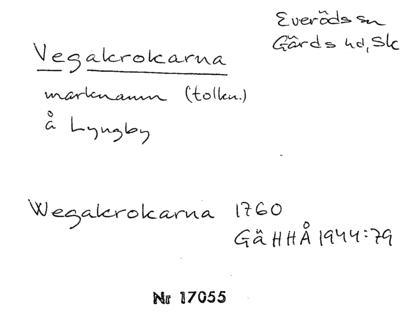 Everöds sn
Gärds hd, Sk
Vegakrokarna
marknamn (tolkn.)
å Lyngby
Wegakrokarna 1760
Gä HHÅ 1944:79
Nr 17055